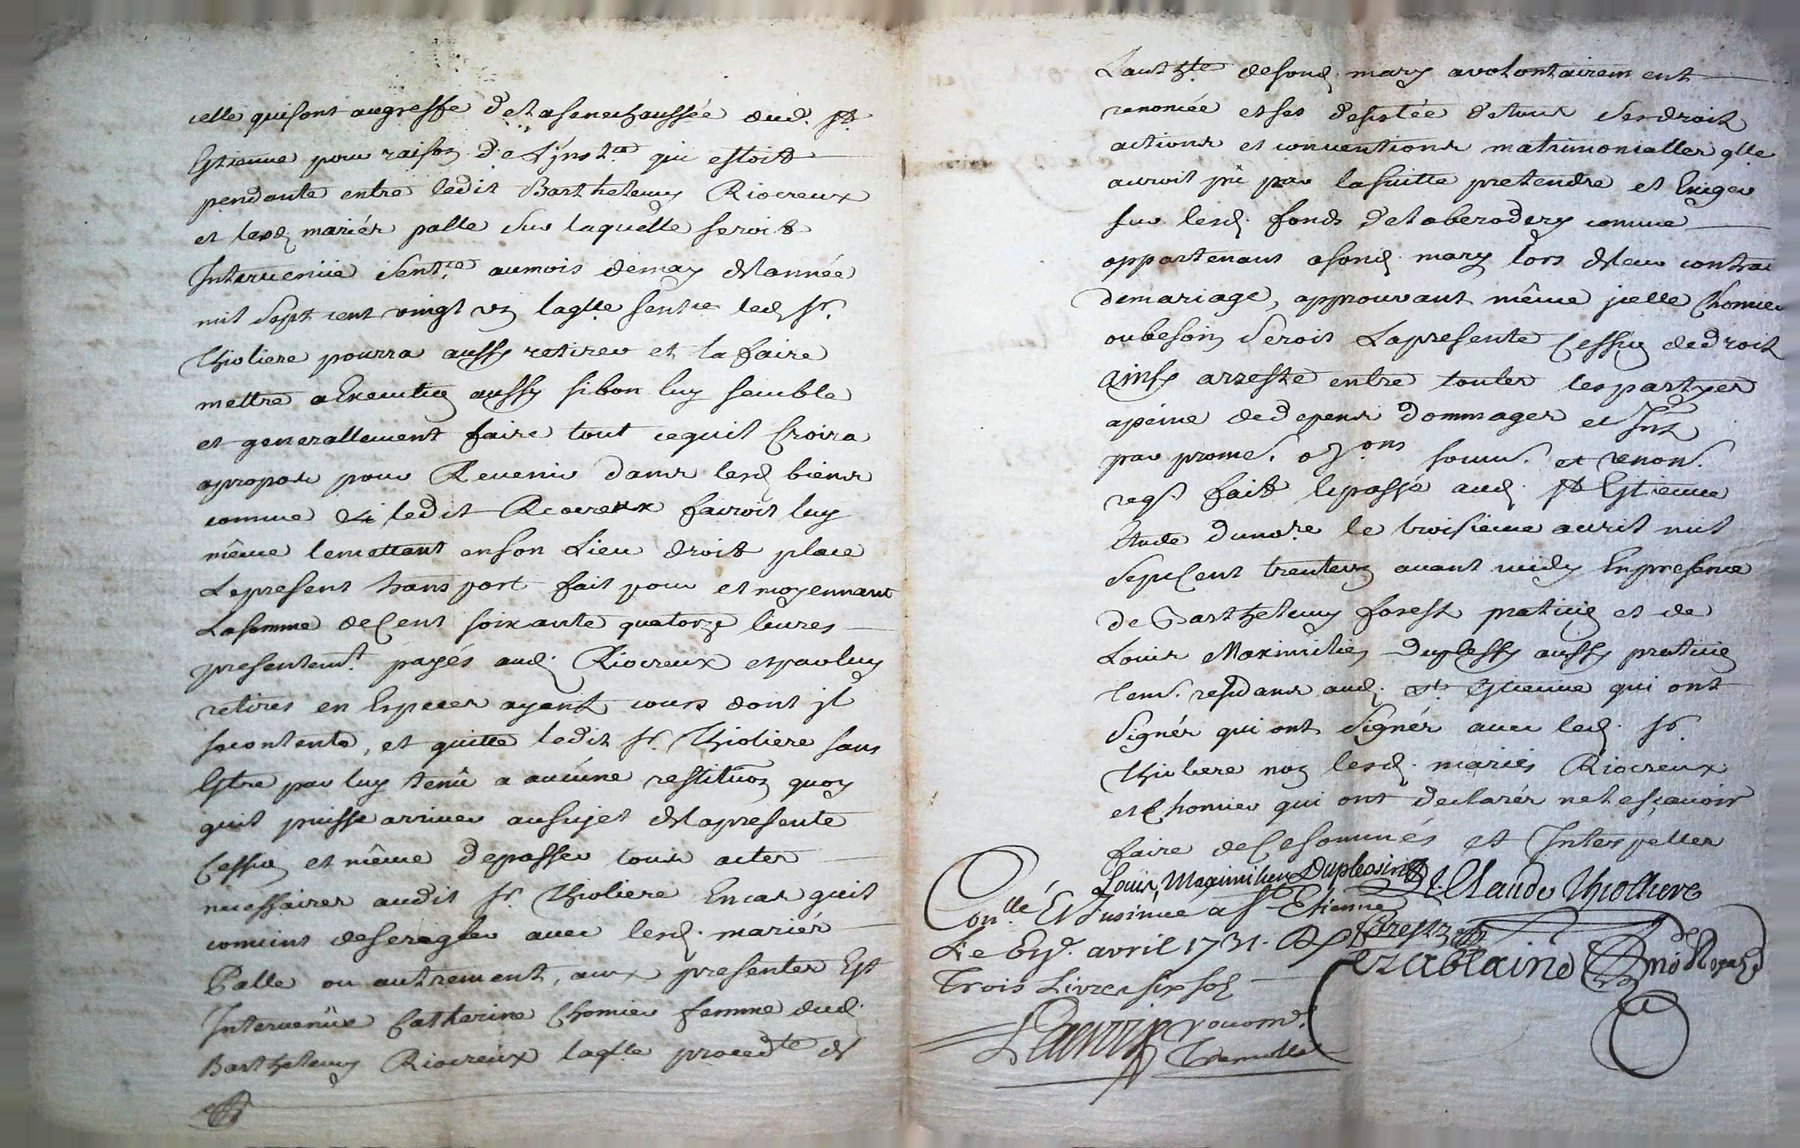 celle qui sont augreffe de la seneuchaussée aud. St.
Estienne pour raison de L'jnst.ce qui estoit
pendante entre ledit Barthelemy Riocreux
et lesd mariés palle sur laquelle seroit
Intervenüe Sent.ce aumois demay de lannée
mil Sept cent vingt un laqlle sentce led Sr.
Thioliere pourra aussy retirer et la faire
mettre a Execution aussy sibon luy semble
et generallement faire tout cequil Croira
apropos pour Revenir dans lesd biens
comme ledit Riocreux fairoit luy
même lemettant enson Lieu droit place
Lepresent transport fait pour et moyennant
Lasomme deCent soixante quatorze livres
presentemt. payés aud. Riocreux et par luy
retirés en Especes ayant cours dont jl
secontente, et quitte ledit Sr. Thioliere sans
Estre par luy tenû a aucune restitution quoy
quil puisse arriver ausujet de lapresente
Cession et même depasser tous actes
necessaires audit Sr. Thioliere Encas quil
convins deseregler avec lesd. mariés
Palle ou autrement, aux presentes Est
Intervenüe Catherine Chomier femme dud.
Barthelemy Riocreux laqlle proced.te de
Lauth.te desond. mary avolontairement
renoncée et ses desistée detous ses droit
actions et conventions matrimonialles qlle
auroit pû par lasuitte pretendre et Exiger
sur lesd. fonds delaberodery comme
appartenant asond. mary lors de leur contrat
demariage, approuvant même jcelle Chomier
oubesoin seroit Lapresente Cession dedroit
Ainsy arresté entre toutes lespartyes
apeine dedepens dommages et Jnt
par prome. oblons soum. et renon.
reqs. fait et passé aud. St Estienne
Etude dunore le troisieme avril mil
SeptCent trente un avant midy Enpresence
de Barthelemy forest praticien et de
Louis Maximilien Duplessy aussy praticien
tem. residans aud. St. Estienne qui ont
Signés qui ont Signés avec led. Sr.
Thioliere non lesd. mariés Riocreux
et Chomier qui ont declarés ne lesçavoir
faire deCe sommés et Interpellés
Louis Maximilien Duplessis Claude Thiolliere
Con.llé Et Insinué a St Etienne
Le avril 1731. forest
Trois Livres six sol